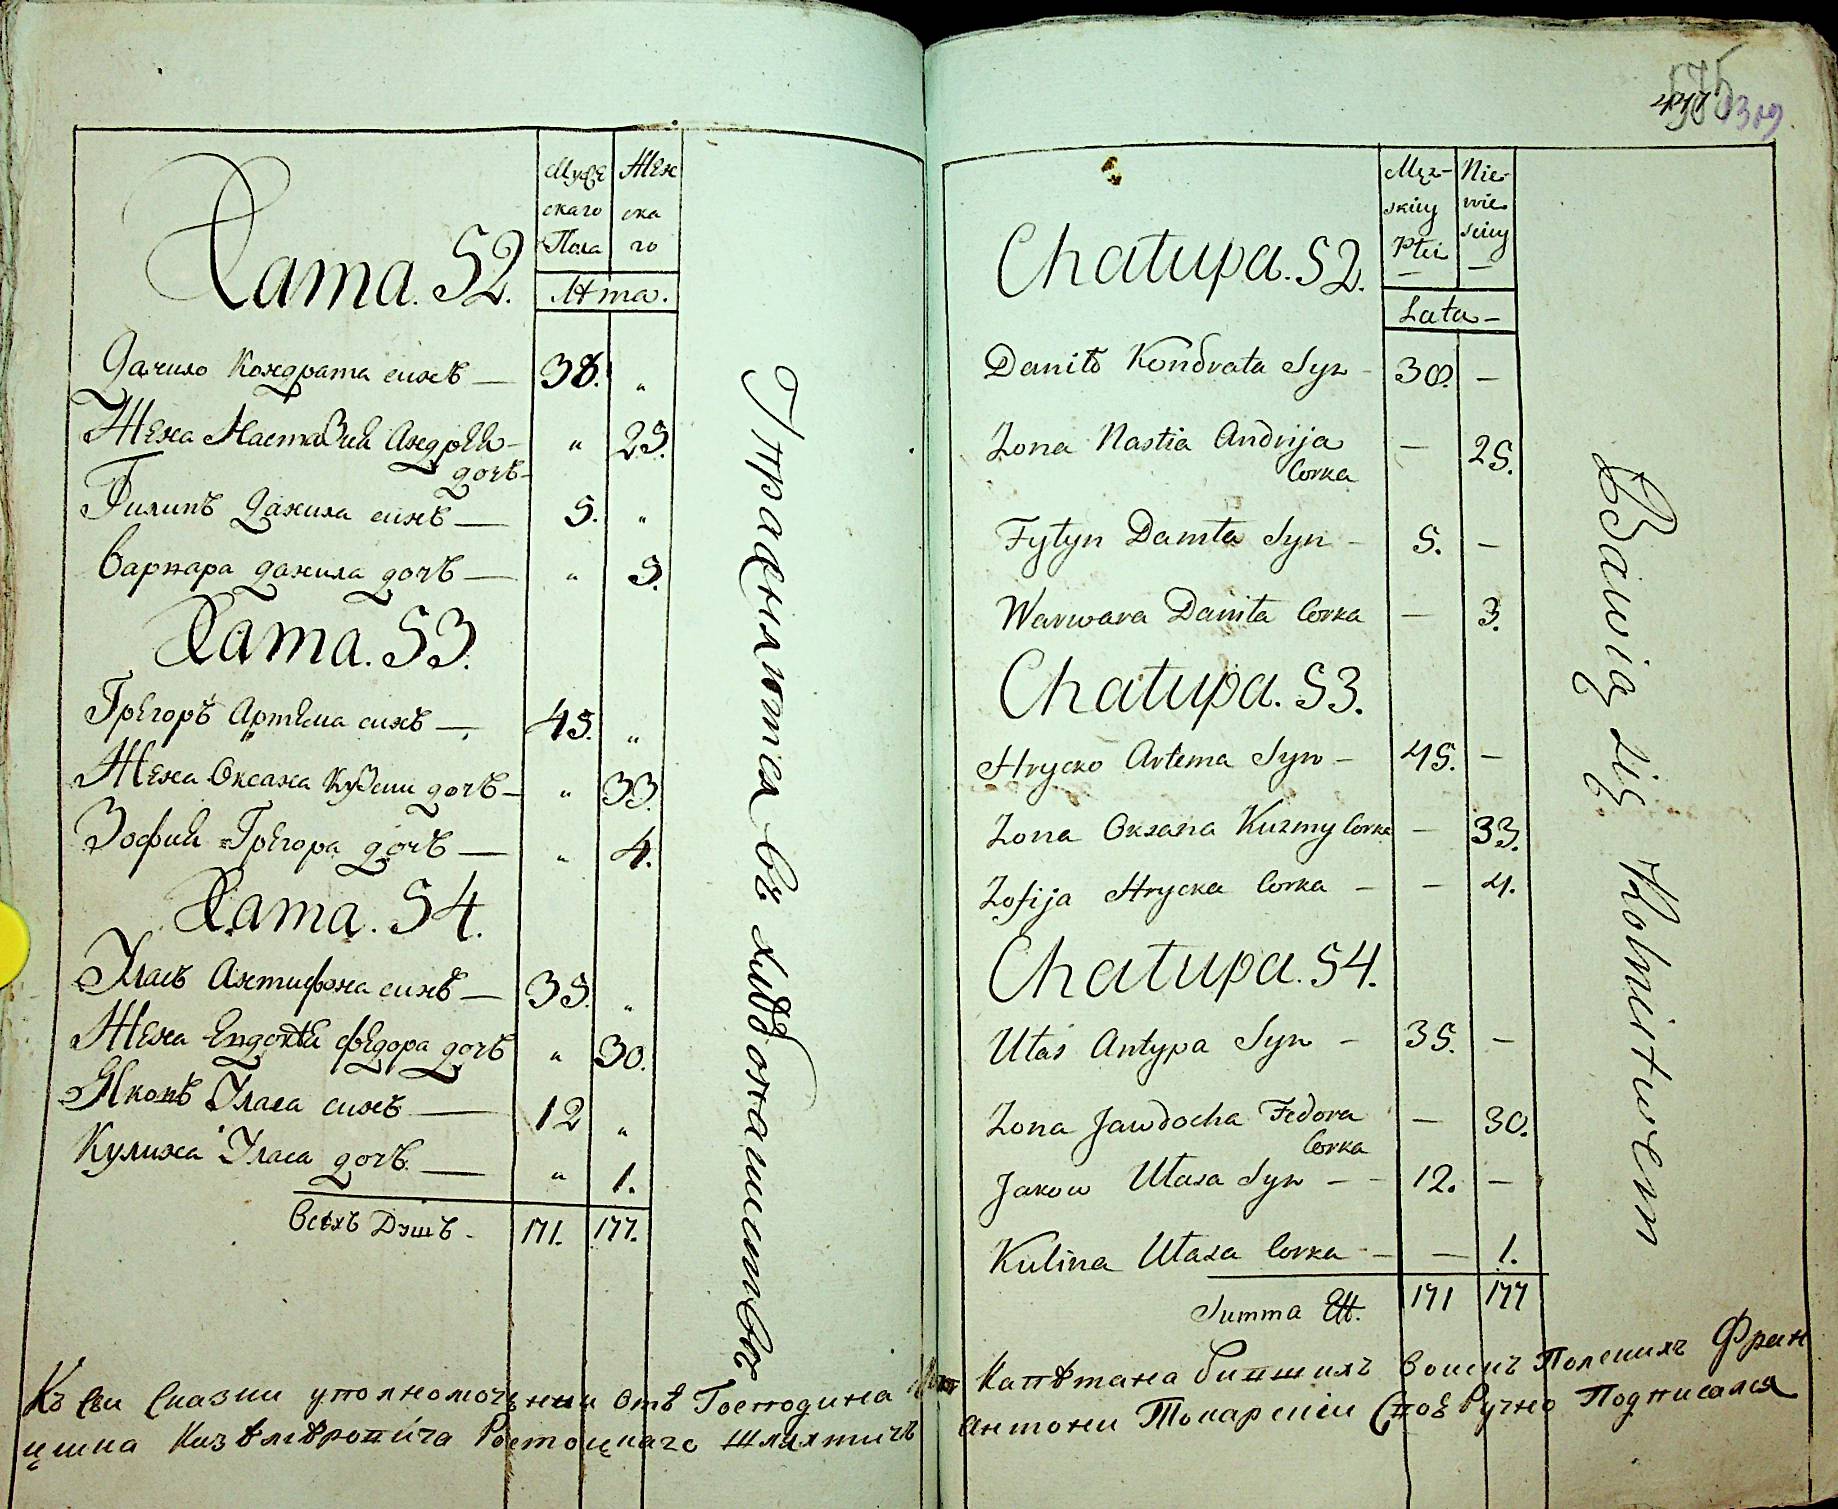 Хата. 52.
Мужескаго Пола
Женскаго
Лѣта.
Данило Кондрата синъ — 38. „
Жена Настазия Андрея дочъ — „ 25.
Филипъ Данила синъ — 5. „
Варвара Данила дочъ — „ 3.
Хата. 53.
Грегоръ Артема синъ — 45. „
Жена Оксана Кузми дочъ — „ 33.
Зофия Грегора дочъ — „ 4.
Хата. 54.
Уласъ Антифона синъ — 35. „
Жена Евдокея Федора дочъ „ 30.
Яковъ Уласа синъ — 12 „
Кулина Уласа дочъ. — „ 1.
Всехъ Душъ - 171. 177.
Упражняются въ хлибопашиствы
309
Chałupa. 52.
Męz-
skiey
Płci
Nie-
wie
sciey
Lata -
Daniło Kondrata Syn - 38. -
Zona Nastia Andrija Corka - 25.
Fyłyp Daniła Syn - 5. -
Warwara Daniła Corka - 3.
Chałupa. 53.
Hrycko Artema Syn - 45. -
Zona Oxana Kuzmy Corka - 33.
Zofija Hrycka Corka - - 4.
Chałupa. 54.
Ułas Antypa Syn - 35. -
Zona Jawdocha Fedora Corka - 30.
Jakow Ułasa Syn - - 12. -
Kulina Ułasa Corka - - 1.
Summa 171 177
Bawią się Rolnictwem
Къ сеи Сказки уполномоченни отъ Господина Капѣтана бившихъ воискъ Полскихъ Фран
цишка Ростоцкаго Шляхтичъ Антони Токарскіи Своеручно Подписался